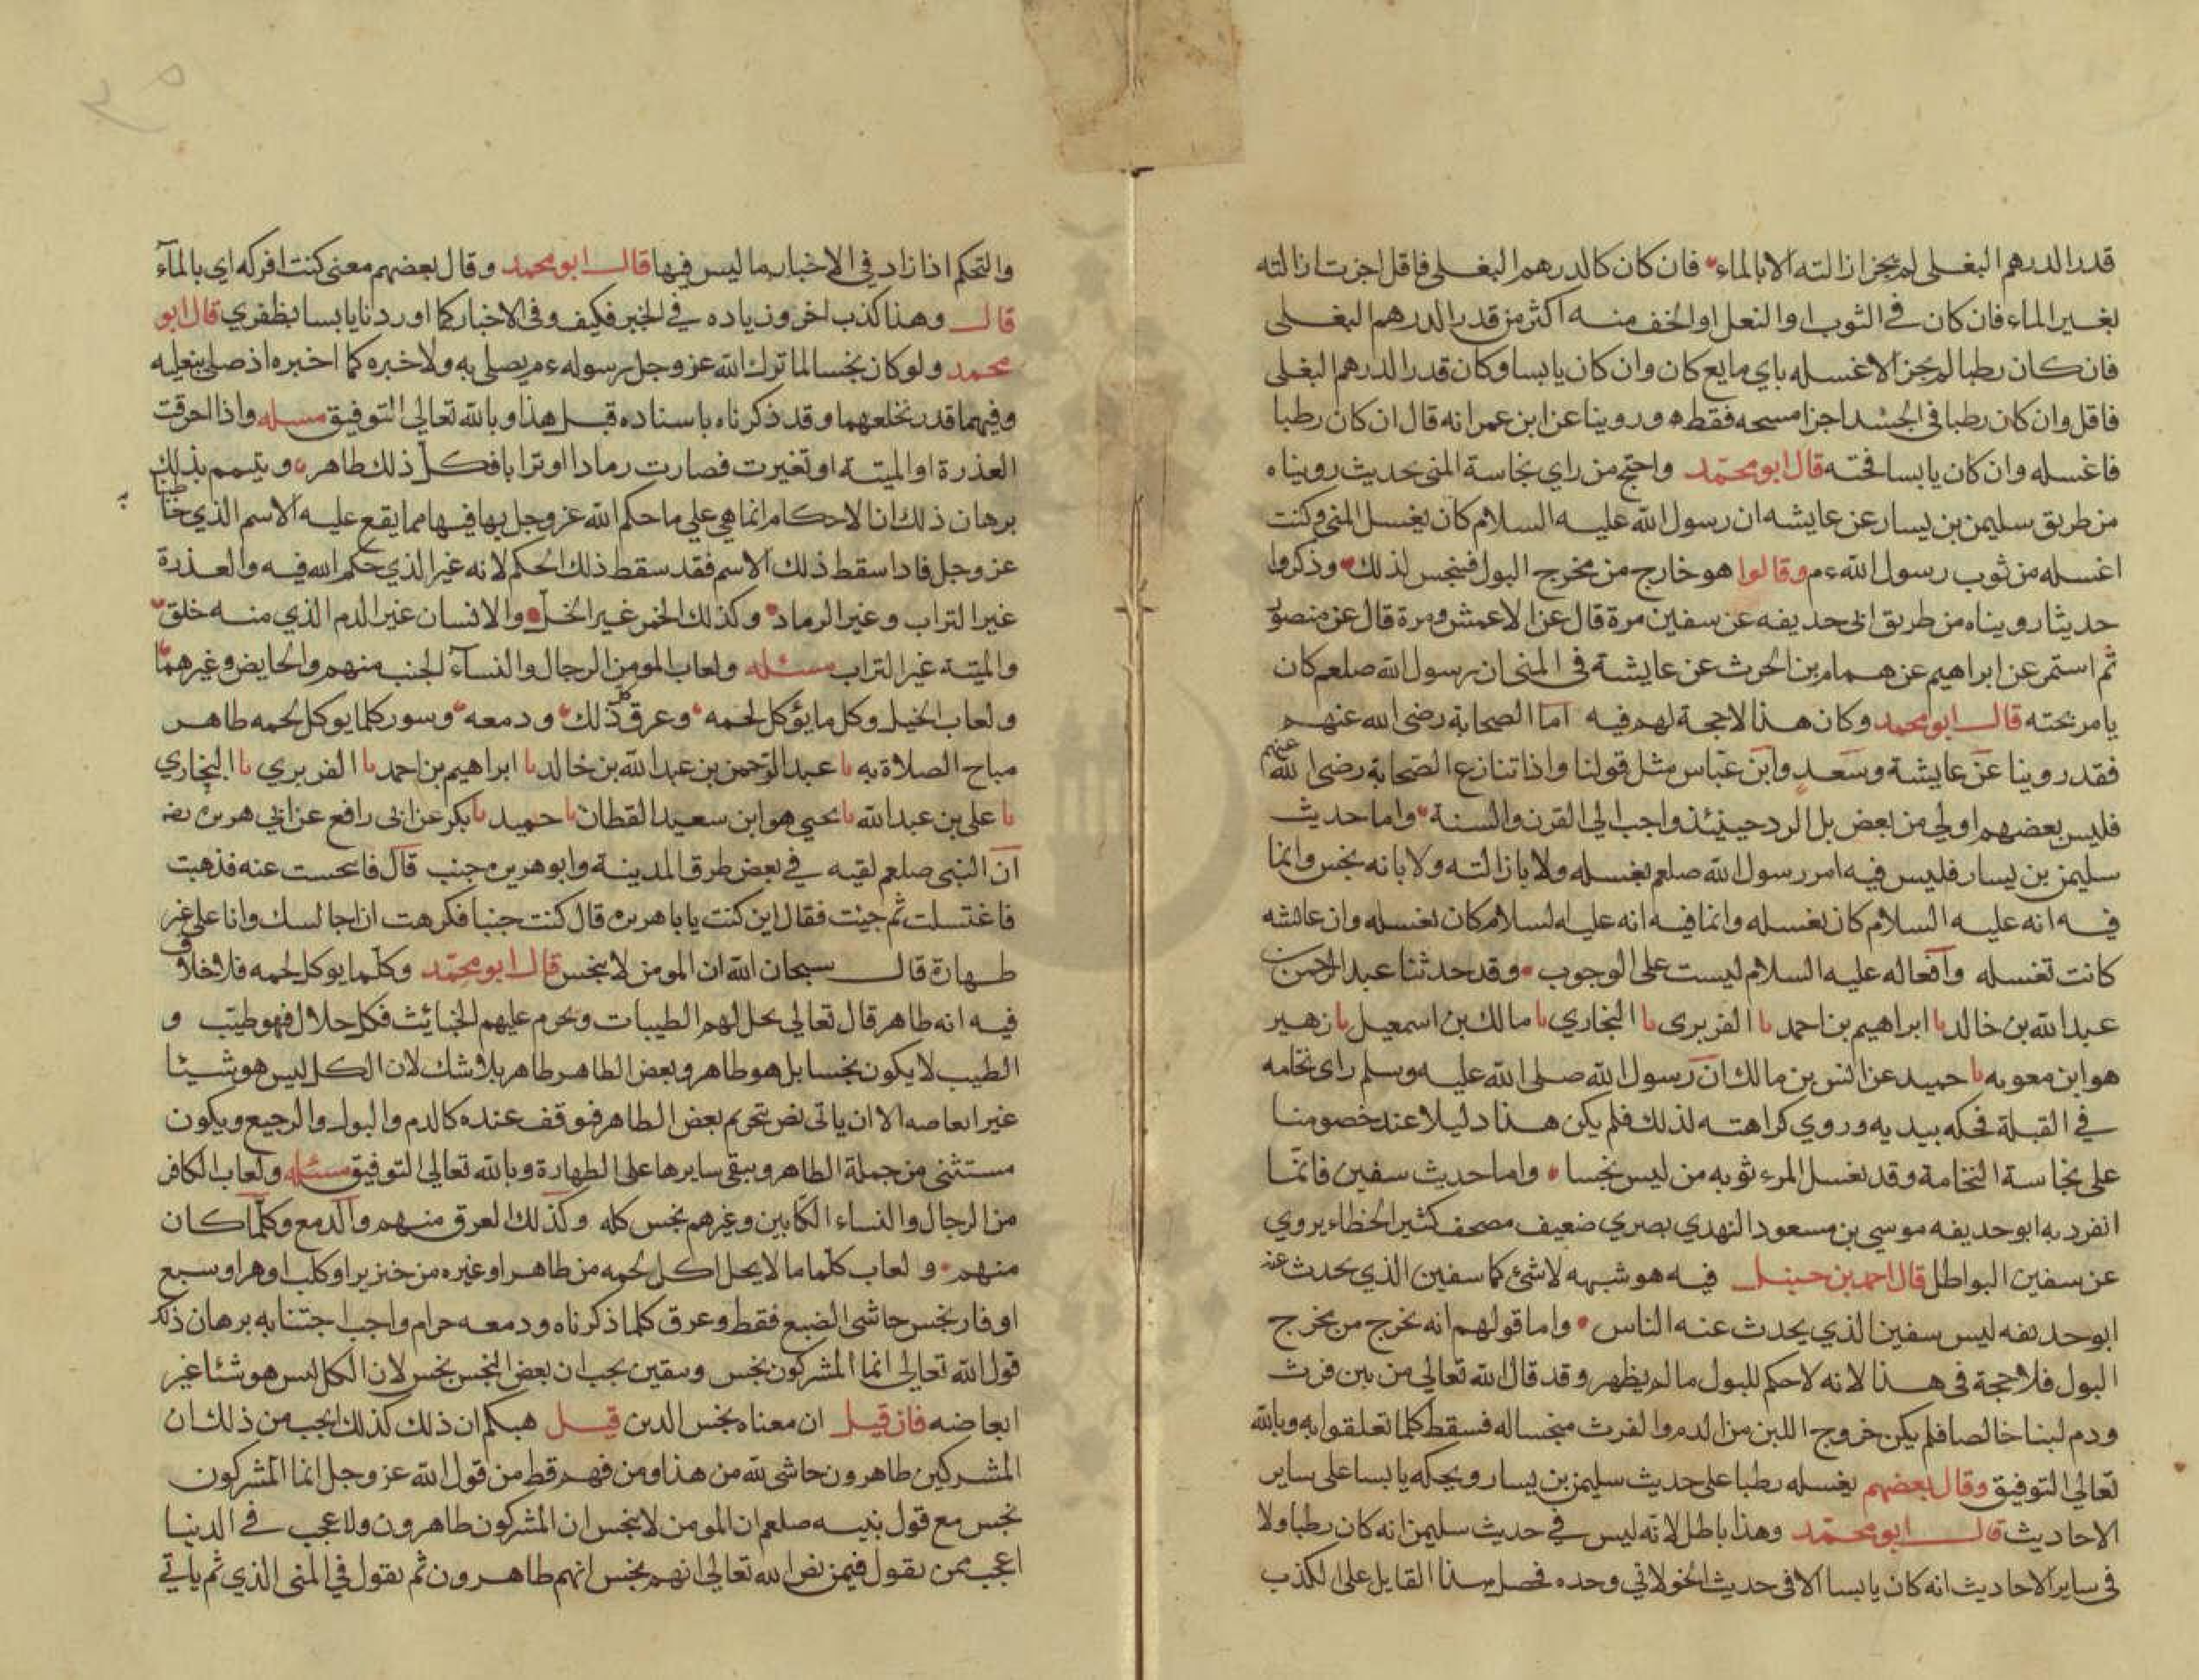 قدر الدرهم البغلي لم يجز ازالته الا بالماء فان كان كالدرهم البغلي فاقل اجزت ازالته
بغير الماء فان كان في الثوب او النعل او الخف منه اكثر من قدر الدرهم البغلي
فان كان رطبا لم يجز الا غسله باي مايع كان وان كان يابسا وكان قدر الدرهم البغلي
فاقل وان كان رطبا في الجسد اجزا مسحه فقط ه وروينا عن ابن عمر انه قال ان كان رطبا
فاغسله وان كان يابسا فحته قال ابو محمد واحتج من راي نجاسة المني بحديث رويناه
من طريق سليمن بن يسار عن عايشه ان رسول الله عليه السلام كان يغسل المني وكنت
اغسله من ثوب رسول الله ءم وقالوا هو خارج من مخرج البول فينجس لذلك وذكروا
حديثا رويناه من طريق ابي حديفه عن سفين مرة قال عن الاعمش ومرة قال عن منصور
ثم استمر عن ابراهيم عن همام بن الحرث عن عايشة في المني ان رسول الله صلعم كان
يامر بحته قال ابو محمد وكان هذا لا حجة لهم فيه اما الصحابة رضي الله عنهم
فقد روينا عن عايشة وسعد وابن عباس مثل قولنا واذا تنازع الصحابة رضي الله عنهم
فليس بعضهم اولي من بعض بل الرد حينئذ واجب الي القرن والسنة واما حديث
سليمن بن يسار فليس فيه امر رسول الله صلعم بغسله ولا بازالته ولا بانه نجس وانما
فيه انه عليه السلام كان يغسله وانما فيه انه عليه السلام كان يغسله وان عائشه
كانت تغسله وافعاله عليه السلام ليست على الوجوب وقد حدثنا عبد الرحمن
عبد الله بن خالد نا ابراهيم بن احمد نا الفربري نا البخاري نا مالك بن اسمعيل نا زهير
هو ابن معويه نا حميد عن انس بن مالك ان رسول الله صلى الله عليه وسلم راى نخامه
في القبلة فحكه بيديه وروي كراهته لذلك فلم يكن هذا دليلا عند خصومنا
على نجاسة النخامة وقد يغسل المرء ثوبه من ليس نجسا واما حديث سفين فانما
انفرد به ابو حديفه موسي بن مسعود النهدي بصري ضعيف مصحف كثير الخطاء يروي
عن سفين البواطل قال احمد بن حنبل فيه هو شبهه لا شئ كما سفين الذي يحدث عنه
ابو حديفه ليس سفين الذي يحدث عنه الناس واما قولهم انه يخرج من مخرج
البول فلا حجة في هذا لانه لا حكم للبول ما لم يظهر وقد قال الله تعالي من بين فرث
ودم لبنا خالصا فلم يكن خروج اللبن من الدم والفرث منجسا له فسقط كلما تعلقوا به وبالله
تعالي التوفيق وقال بعضهم يغسله رطبا على حديث سليمن بن يسار ويحكه يابسا على ساير
الاحاديث قال ابو محمد وهذا باطل لانه ليس في حديث سليمن انه كان رطبا ولا
في ساير الاحاديث انه كان يابسا الا في حديث الخولاني وحده فحصل هذا القايل على الكذب
والتحكم اذا زاد في الاخبار ما ليس فيها قال ابو محمد وقال بعضهم معنى كنت افركه اي بالماء
قال وهذا كذب اخر وزياده في الخبر فكيف وفي الاخبار كما اوردنا يابسا بظفري قال ابو
محمد ولو كان نجسا لما ترك الله عز وجل رسوله ءم يصلي به ولاخبره كما اخبره اذ صلى بنعليه
وفيهما قذر نخلعهما وقد ذكرناه باسناده قبل هذا وبالله تعالي التوفيق مسله واذا احرقت
العذرة او الميتة او تغيرت فصارت رمادا او ترابا فكل ذلك طاهر ويتيمم بذلك
برهان ذلك ان الاحكام انما هي علي ما حكم الله عز وجل بها فيها مما يقع عليه الاسم الذي خاطبنا به
عز وجل فاذا سقط ذلك الاسم فقد سقط ذلك الحكم لانه غير الذي حكم الله فيه والعذرة
غير التراب وغير الرماد وكذلك الخمر غير الخل والانسان غير الدم الذي منه خلق
والميتة غير التراب مسئله ولعاب المومن الرجال والنساء الجنب منهم والحايض وغيرهما
ولعاب الخيل وكل ما يؤكل لحمه وعرق كل ذلك ودمعه وسور كلما يوكل لحمه طاهر
مباح الصلاة به نا عبد الرحمن بن عبد الله بن خالد نا ابراهيم بن احمد نا الفربري نا البخاري
نا علي بن عبد الله نا يحيي هو ابن سعيد القطان نا حميد نا بكر عن ابى رافع عن ابي هريره رضه
ان النبي صلعم لقيه في بعض طرق المدينة وابو هريره جنب قال فانخنست عنه فذهبت
فاغتسلت ثم جيت فقال اين كنت يابا هريره قال كنت جنبا فكرهت ان اجالسك وانا على غير
طهارة قال سبحان الله ان المومن لا ينجس قال ابو محمد وكلما يوكل لحمه فلا خلاف
فيه انه طاهر قال تعالي يحل لهم الطيبات ويحرم عليهم الخبائث فكل حلال فهو طيب و
الطيب لا يكون نجسا بل هو طاهر وبعض الطاهر طاهر بلا شك لان الكل ليس هو شيئا
غير ابعاضه الا ان ياتى نص بتحريم بعض الطاهر فوقف عنده كالدم والبول والرجيع ويكون
مستثنى من جملة الطاهر ويبقى سايرها على الطهارة وبالله تعالي التوفيق مسئله ولعاب الكافر
من الرجال والنساء الكتابين وغيرهم نجس كله وكذلك العرق منهم والدمع وكلما كان
منهم ولعاب كلما ما لا يحل اكل لحمه من طاهر او غيره من خنزير او كلب او هر او سبع
او فار نجس حاشى الضبع فقط وعرق كلما ذكرناه ودمعه حرام واجب اجتنابه برهان ذلك
قول الله تعالي انما المشركون نجس وبيقين يجب ان بعض النجس نجس لان الكل ليس هو شئا غير
ابعاضه فان قيل ان معناه نجس الدين قيل هبكم ان ذلك كذلك ايجب من ذلك ان
المشركين طاهرون حاشى لله من هذا ومن فهم قط من قول الله عز وجل انما المشركون
نجس مع قول نبيه صلعم ان المومن لا ينجس ان المشركون طاهرون ولا عجب في الدنيا
اعجب ممن يقول فيمن نص الله تعالي انهم نجس انهم طاهرون ثم يقول في المني الذي ثم ياتي